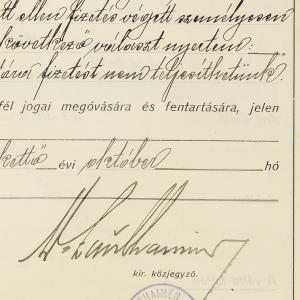 ellen fizetés végett személyesen
következő választ nyertem:
fizetést nem teljesíthetünk.
fél jogai megóvására és fentartására, jelen
kettő évi október hó
kir. közjegyző.